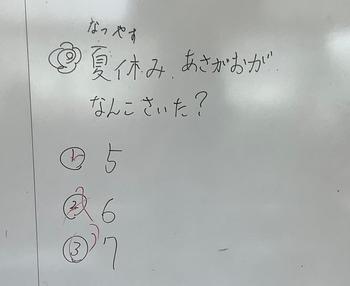 なつやす
夏休み、あさがおが
なんこさいた?
① 5
② 6
③ 7